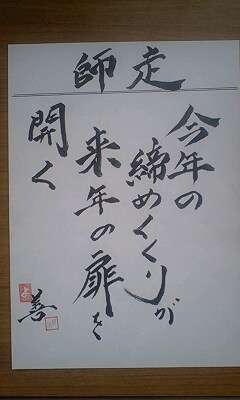 師走
今年の
締めくくりが
来年の扉を
開く
善